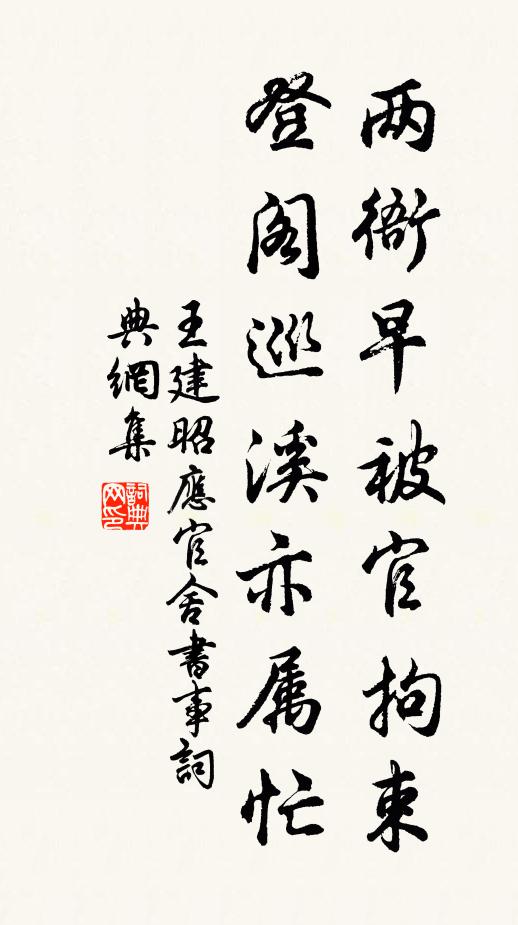 两衙早被官拘束
登阁巡溪亦属忙
王建昭應官舍書事詞
典網集
詞典网印